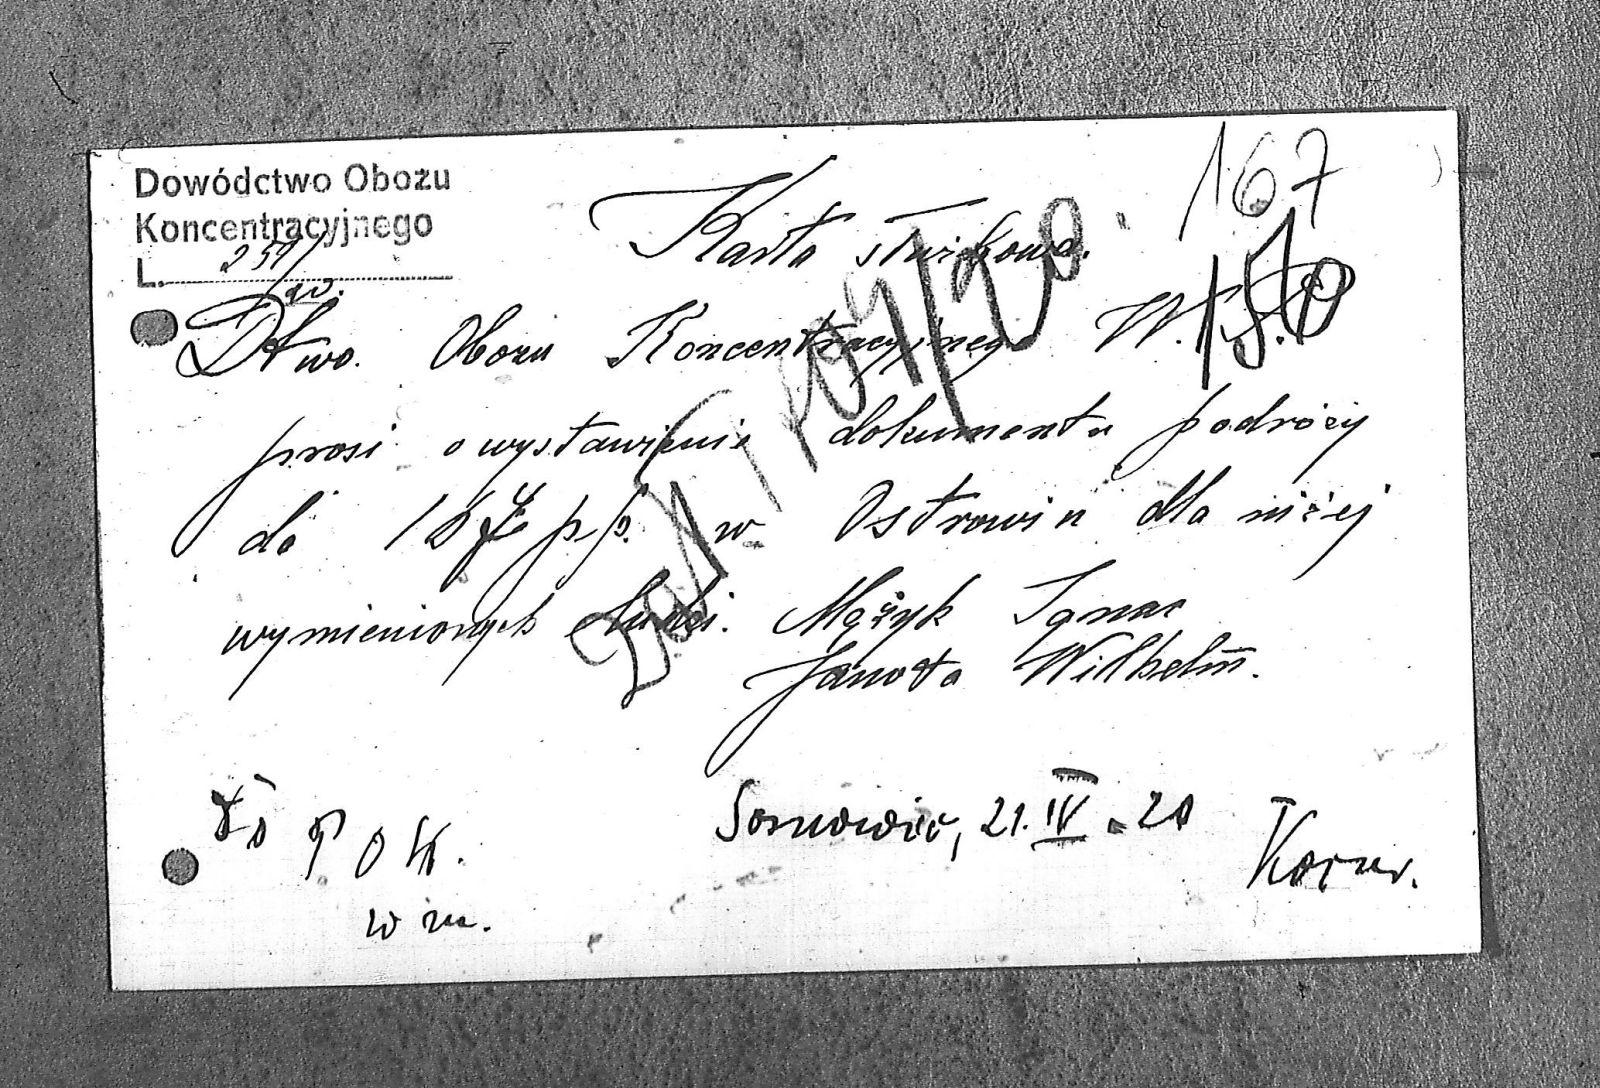 Dowództwo Obozu
Koncentracyjnego
L. 251/20.
167
Karta służbowa.
Dtwo. Obozu Koncentracyjnego W.
prosi o wystawienie dokumentu podróży
do 167 p.p. w Ostrowiu dla niżej
wymienionych ludzi. Mężyk Ignac
Janota Wilhelm.
Do P O K.
w m.
Sosnowiec, 21.IV.20